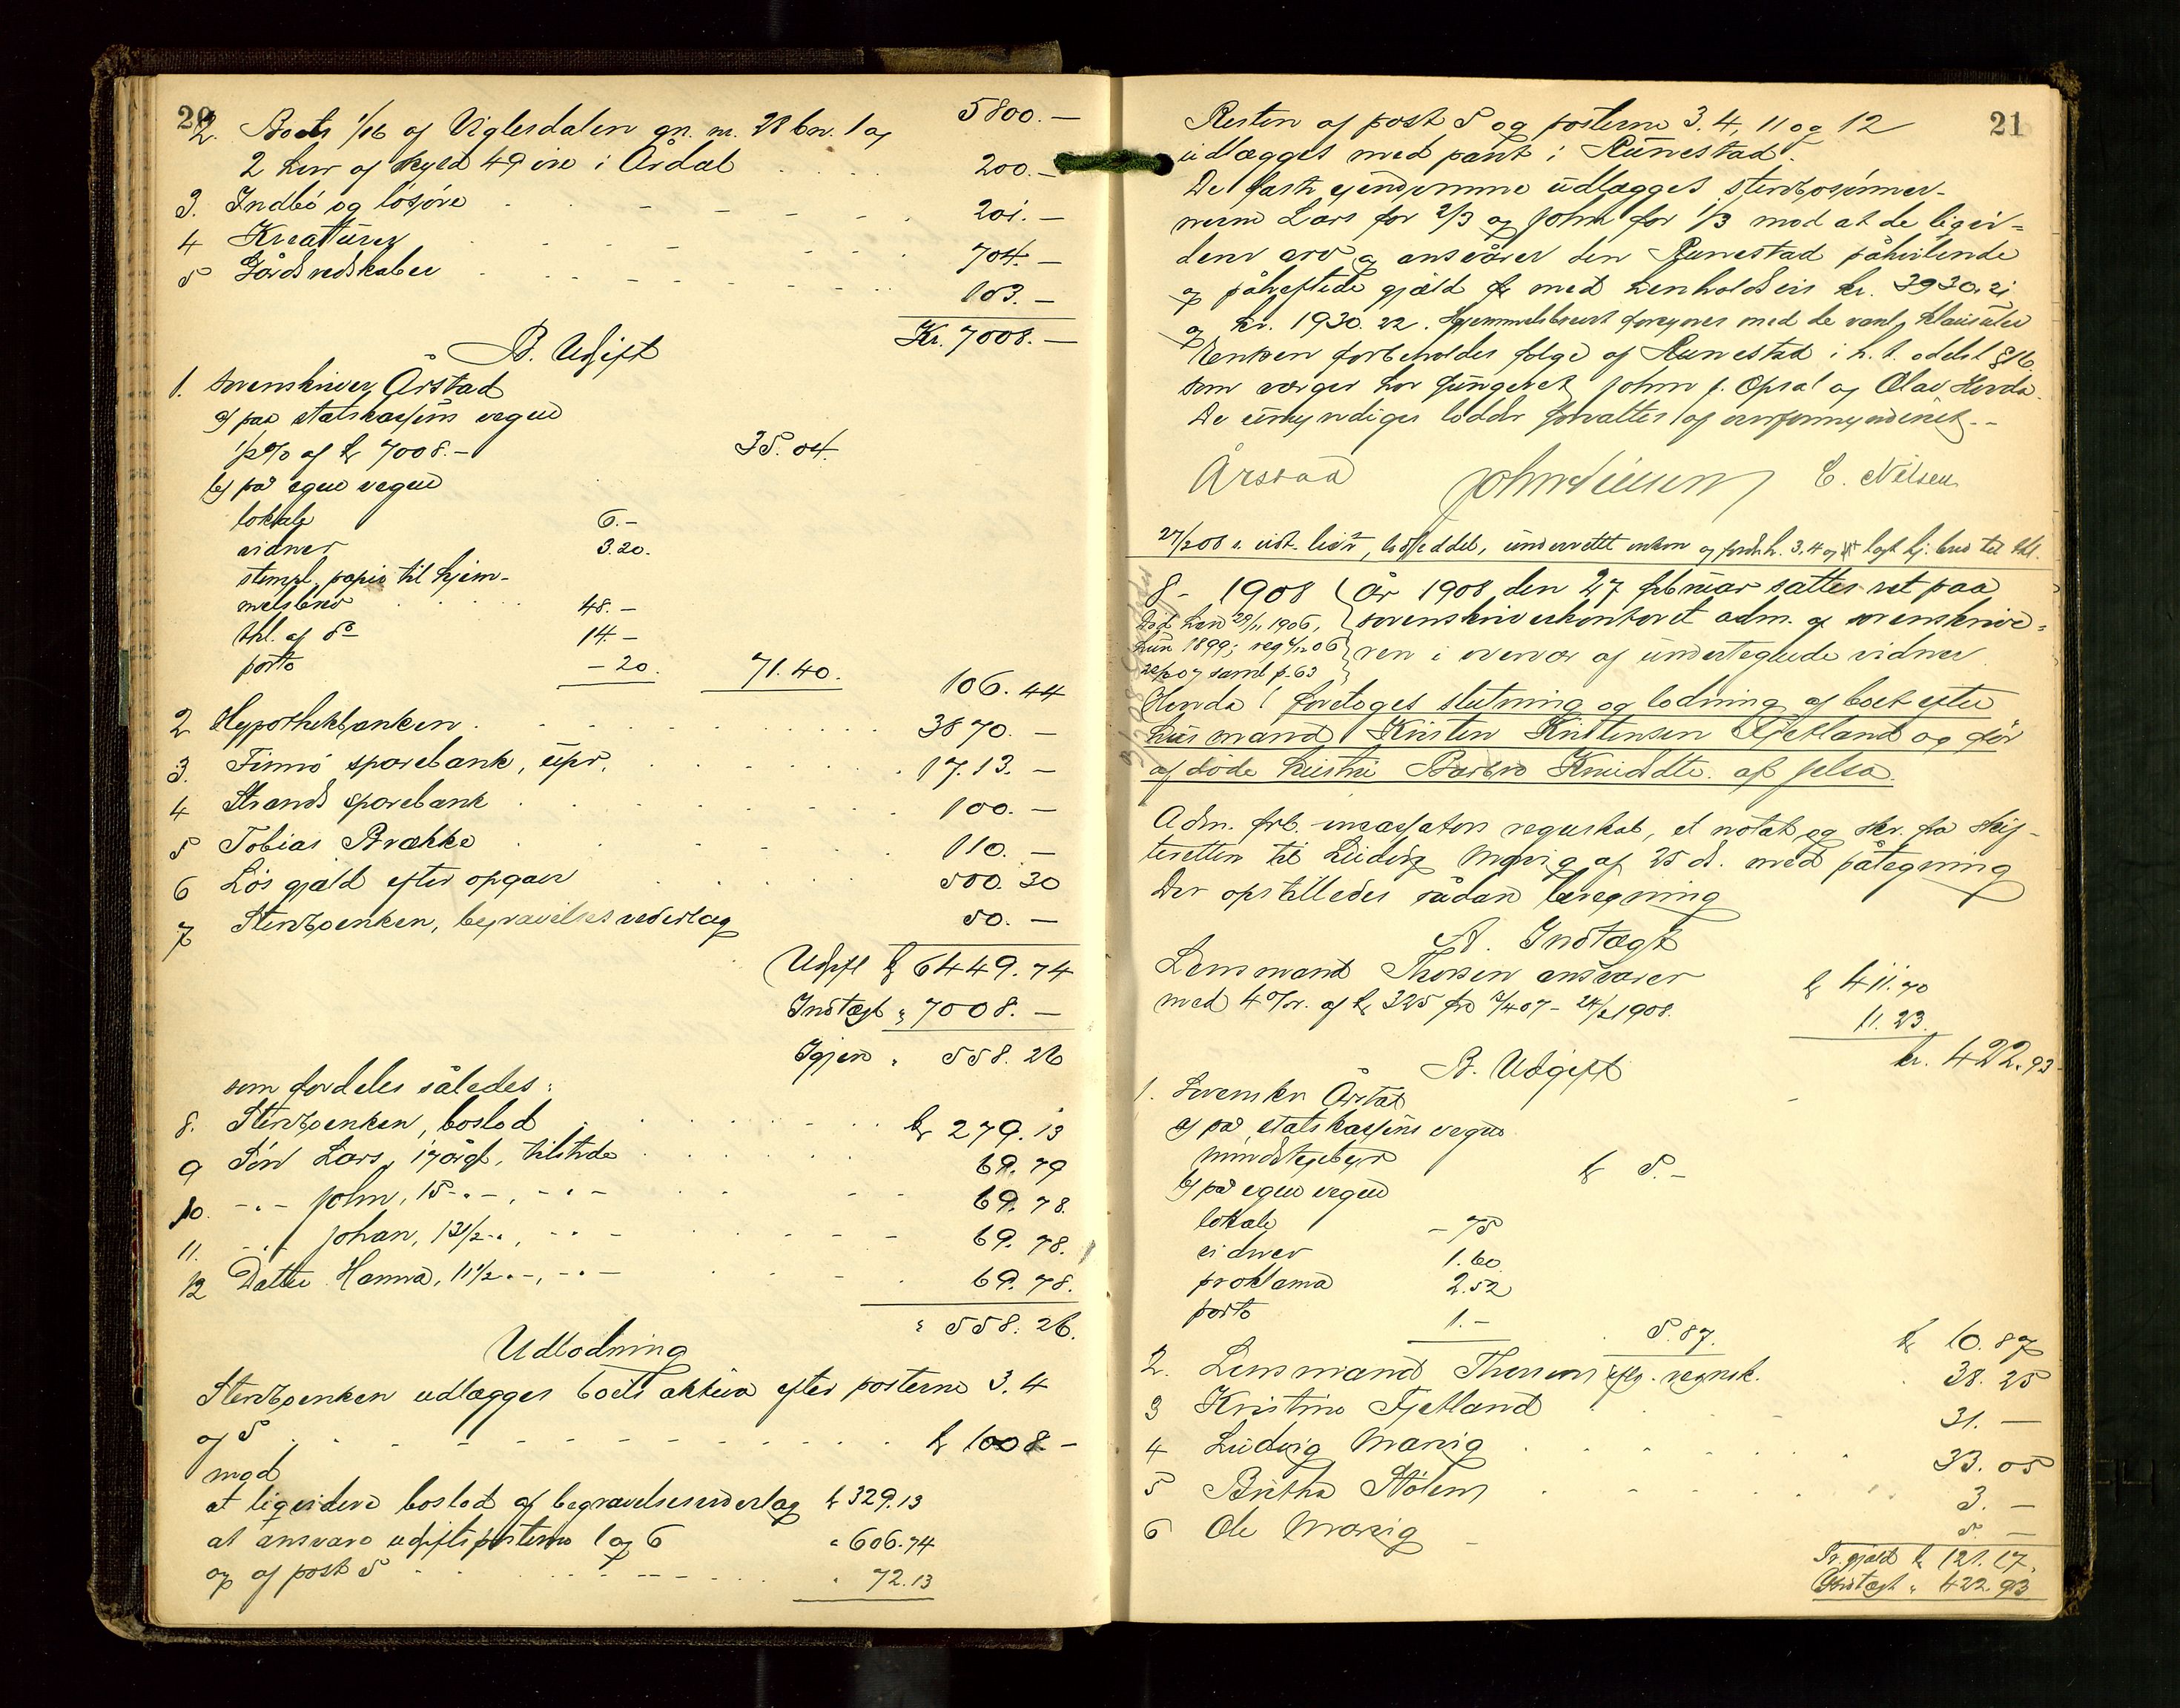 20
2. Boets 1/16 af Viglesdalen gn. nr. 28 bn. 1 og
5800.—
2 hvor af skyld 49 øre i Årdal 200.—
3. Indbo og løsøre 201.—
4 Kreaturer 704.—
5 Gårdsredskaber 103.—
Kr. 7008.—
B. Udgift
1. sorenskriver Årstad
a) paa statskassens vegne
1/2% af kr 7008.- 35.04.
b) på egne vegne
lokale 6.-
vidner 3.20.
stempl. papir til hjem-
melsbrev 48.-
thl. af do 14.-
porto -20. 71.40. 106.44
2 Hypothekbanken 3870.—
3. Finnø sparebank, opr. 1713.—
4 Strands sparebank 100.—
5 Tobias Brække 110.—
6 Løs gjæld efter opgave 500.30
7 Stervboenken, begravelsesvederlag 50.—
Udgift kr 6449.74
Indtægt " 7008.—
Igjen " 558.26
som fordeles således:
8. Stervboenken, boslod kr 279.13
9 Søn Lars, 17 årig, tilstede 69.79
10. -"- John, 15-"-, -"- 69.78
11. -"- Johan, 13 1/2-"-, -"- 69.78.
12 Datter Hanna, 11 1/2 -"-, -"- 69.78.
" 558.26.
Udlodning
Stervboenken udlægges boets aktiva efter posterne 3. 4
og 5 kr 1008-
mod
at liqvidere boslod og begravelsesvederlag kr 329.13
at ansvare udgiftsposterne 1 og 6 " 606.74
og af post 5 " 72.13
21
Resten af post 5 og posterne 3. 4, 11 og 12
udlægges med pant i Runestad.
De faste ejendomme udlægges stervbosønner-
nerne Lars for 2/3 og John for 1/3 mod at de liqvi-
derer arv og ansvarer den Runestad påhvilende
og påheftede gjæld med henholdsvis kr. 3930.21
og kr. 1930.22. Hjemmelsbrevet foregives med de vanl. klausuler
Enken forbeholdes følge af Runestad i h. t. odelsl § 16.
som værger har fungeret John J. Opsal og Olav Hervda.
De umyndiges lodder forvaltes af overformynderiet.-
Årstad John Nilsen E. Nilsen
27/2 08 lodseddel, underrettet enken og
8 - 1908 År 1908 den 27 februar sattes ret paa
Død han 29/11 1906, sorenskriverkontoret adm. af sorenskrive-
hun 1899; reg 4/12 06 ren i overvær af undertegnede vidner
22/2 07 saml p. 63
Hervda foretoges slutning og lodning af boet efter
husmand Kristen Kristensen Fjetland og før
afdøde hustru Barbro Knudsdtr. af Jelsa.
Adm. frb. incassators regnskab, et notat og skr. fra skif-
teretten til Ludvig Marvig af 25 ds. med påtegning
Der opstilledes sådan beregning
A. Indtægt
Lensmand Thorsen ansvarer kr 411.70
med 4% r. af kr 325 fra 7/4 07 - 24/2 1908. 11.23.
kr. 422.93
B. Udgift
1. Sorenskr Årstad
a) på statskassens vegne
mindstegebyr kr 5.-
b) på egne vegne
lokale -75
vidner 1.60
proklama 2.52
porto 1.- 5.87. kr 10.87
2. Lensmand Thorsen efter regnsk. 38.25
3 Kristine Fjetland 31.—
4 Ludvig Marvig 33.05
5 Britha Stølen 3.—
6 Ole Marvig 5.—
Tr. gjæld kr 121.17.
Indtægt " 422.93